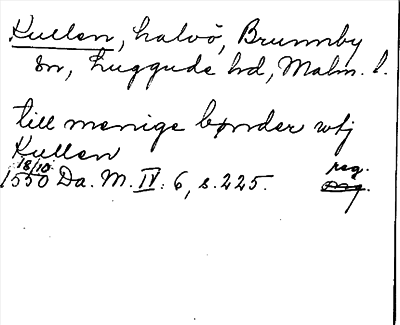 Kullen, halvö, Brunnby
sn, Luggude hd, Malm. l.
till menige bønder wtj
Kullen
18/10
1550 Da. M. IV: 6, s. 225.
reg.